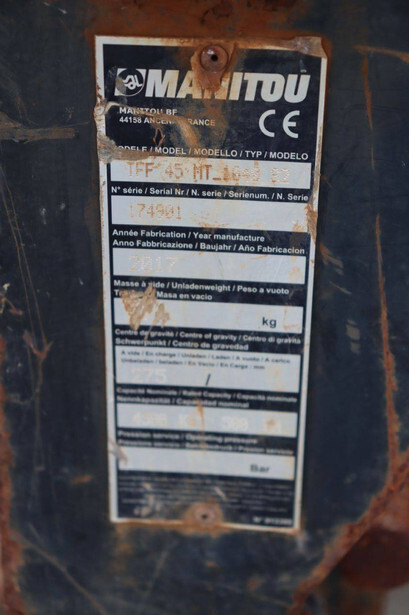 MANITOU
MANITOU BF
44158 ANCENIS FRANCE
CE
MODELE / MODEL / MODELLO / TYP / MODELO
TFF 45 MT
N° série / Serial Nr / N. serie / Serienum. / N. Serie
174901
Année Fabrication / Year manufacture
Anno Fabbricazione / Baujahr / Año Fabricacion
2017
Masse à vide / Unladenweight / Peso a vuoto
Masa en vacio
kg
Centre de gravité / Centre of gravity / Centro di gravità
Schwerpunkt / Centro de gravedad
A vide / En charge / Unladen / Laden / A vuoto / A carico
Unbeladen / beladen / En Vacio / En Carga - mm
775 /
Capacité Nominale / Rated Capacity / Capacità nominale
Nennkapazität / Capacidad nominal
Pression service / Operating pressure
Bar